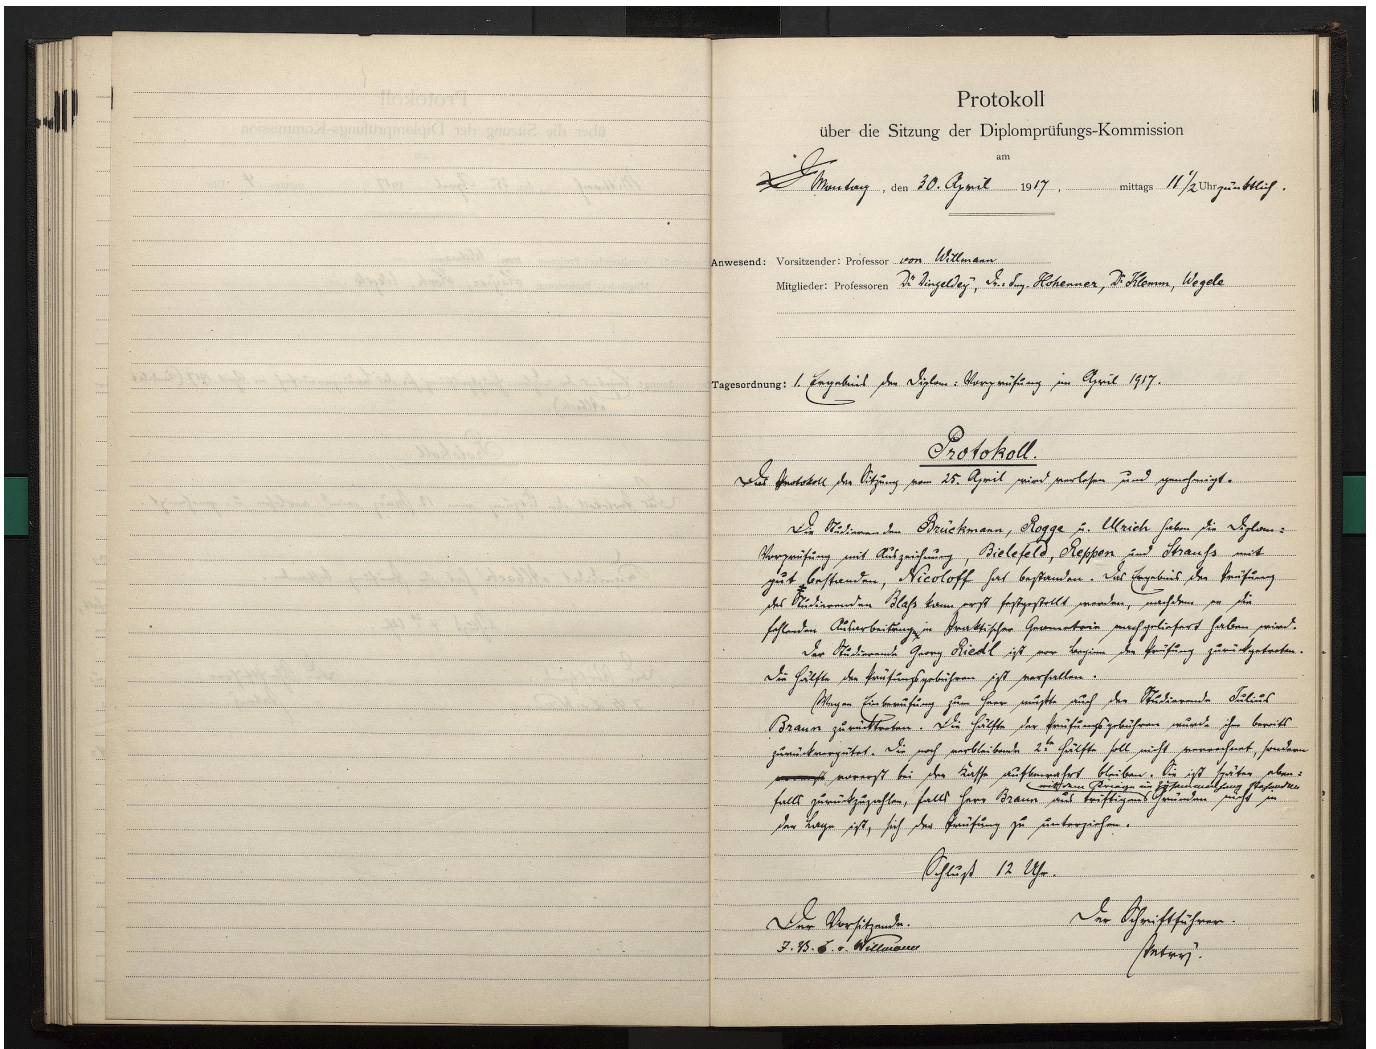 Protokoll
über die Sitzung der Diplomprüfungs-Kommission
am
Montag, den 30. April 1917. mittags 11 1/2 Uhr pünktlich.
Anwesend: Vorsitzender: Professor von Willmann
Mitglieder: Professoren Dr Dingeldey, Dr.-Ing. Hohenner, Dr Klemm, Wegele
Tagesordnung: 1. Ergebnis der Diplom-Vorprüfung im April 1917.
Protokoll.
Das Protokoll der Sitzung vom 25. April wird verlesen und genehmigt.
Die Studierenden Brückmann, Rogge u. Ulrich haben die Diplom-
Vorprüfung mit Auszeichnung, Bielefeld, Reppen und Strauß mit
gut bestanden, Nicoloff hat bestanden. Das Ergebnis der Prüfung
des Studierenden Blaß kann erst festgestellt werden, nachdem er die
fehlenden Ausarbeitung in Praktischer Geometrie nachgeliefert haben wird.
Der Studierende Georg Riedl ist vor Beginn der Prüfung zurückgetreten.
Die Hälfte der Prüfungsgebühren ist verfallen.
Wegen Einberufung zum Heer mußte auch der Studierende Julius
Braun zurücktreten. Die Hälfte der Prüfungsgebühren wurde ihm bereits
zurückvergütet. Die noch verbleibende 2te Hälfte soll nicht verrechnet, sondern
vorerst bei der Kasse aufbewahrt bleiben. Sie ist später eben-
mit dem Kriege im Zusammenhang stehenden
falls zurückzuzahlen, falls Herr Braun aus triftigen Gründen nicht in
der Lage ist, sich der Prüfung zu unterziehen.
Schluß 12 Uhr.
Der Vorsitzende. Der Schriftführer.
J. V. v. Willmann Petry.